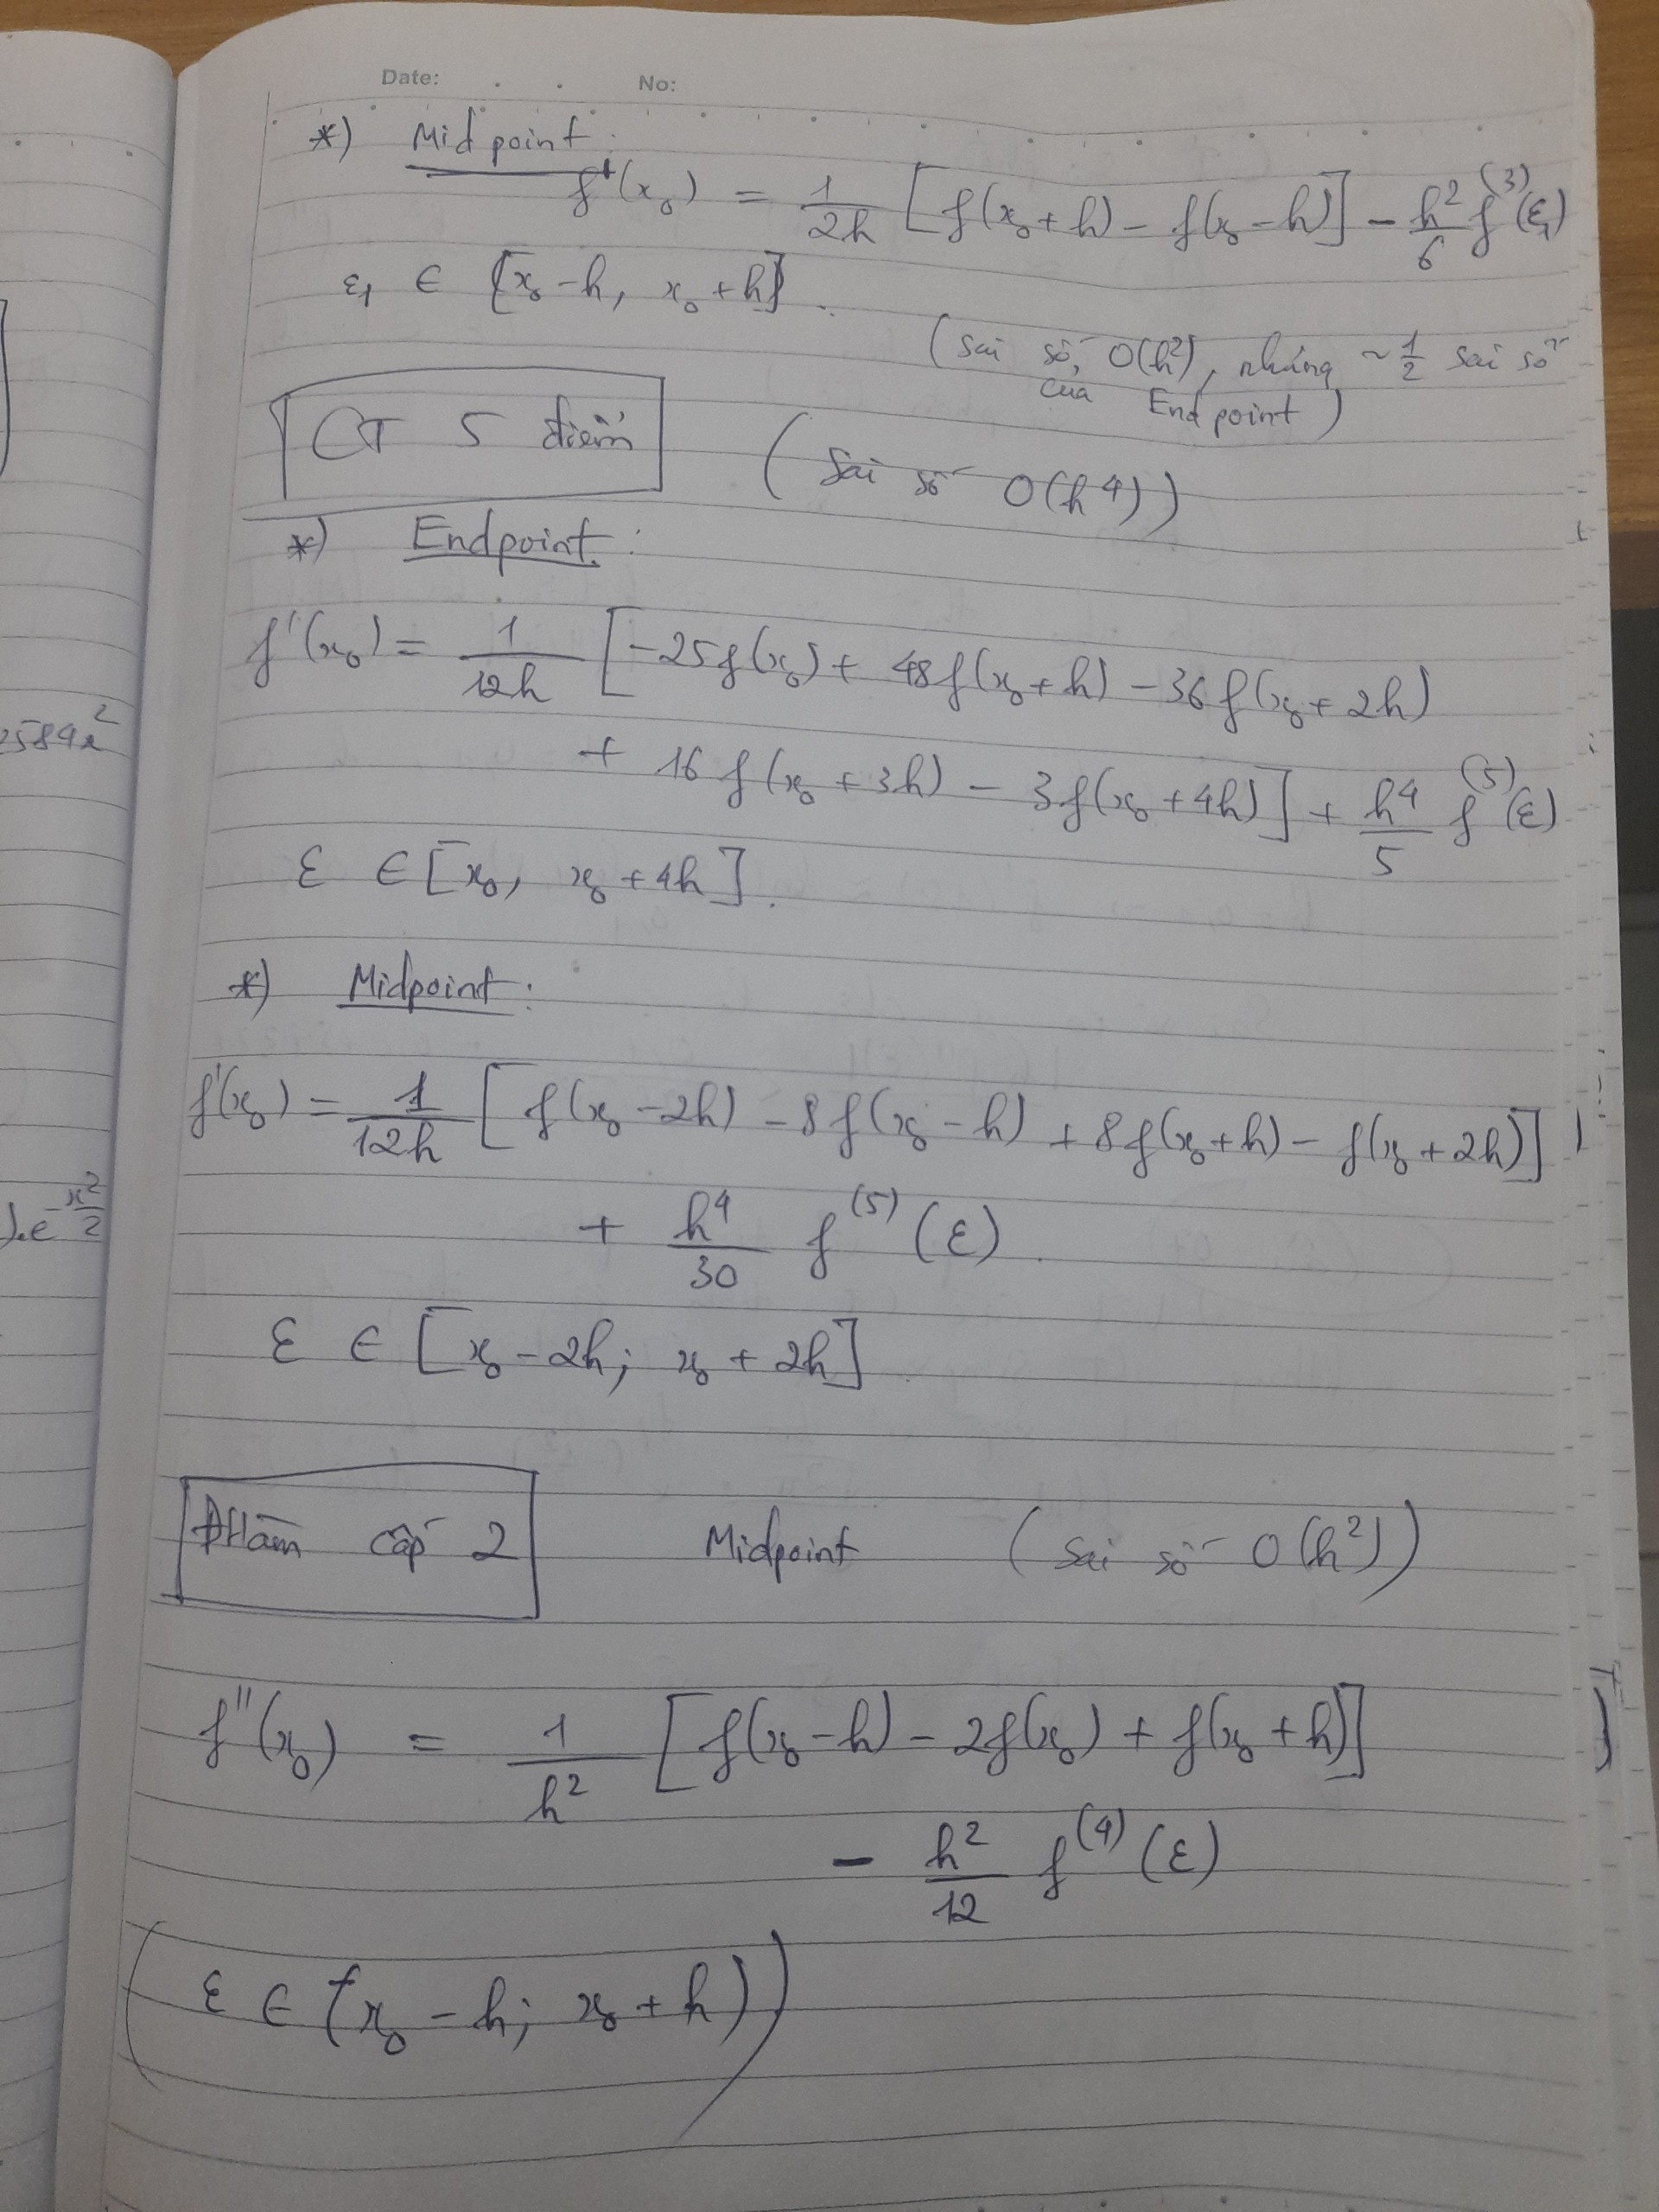 Date: . . No:
*) Midpoint:
f'(x₀) = 1/2h [f(x₀+h) - f(x₀-h)] - h²/6 f⁽³⁾(ε₁)
ε₁ ∈ [x₀-h, x₀+h].
(Sai số O(h²), nhưng ~ 1/2 sai số
của Endpoint)
CT 5 điểm (Sai số O(h⁴))
*) Endpoint:
f'(x₀) = 1/12h [-25f(x₀) + 48f(x₀+h) - 36f(x₀+2h)
+ 16f(x₀+3h) - 3f(x₀+4h)] + h⁴/5 f⁽⁵⁾(ε)
ε ∈ [x₀, x₀+4h].
2584x²
*) Midpoint:
f'(x₀) = 1/12h [f(x₀-2h) - 8f(x₀-h) + 8f(x₀+h) - f(x₀+2h)]
).e^(-x²/2)
+ h⁴/30 f⁽⁵⁾(ε).
ε ∈ [x₀-2h; x₀+2h].
ĐHàm cấp 2 Midpoint (Sai số O(h²))
f''(x₀) = 1/h² [f(x₀-h) - 2f(x₀) + f(x₀+h)]
- h²/12 f⁽⁴⁾(ε)
(ε ∈ (x₀-h; x₀+h))